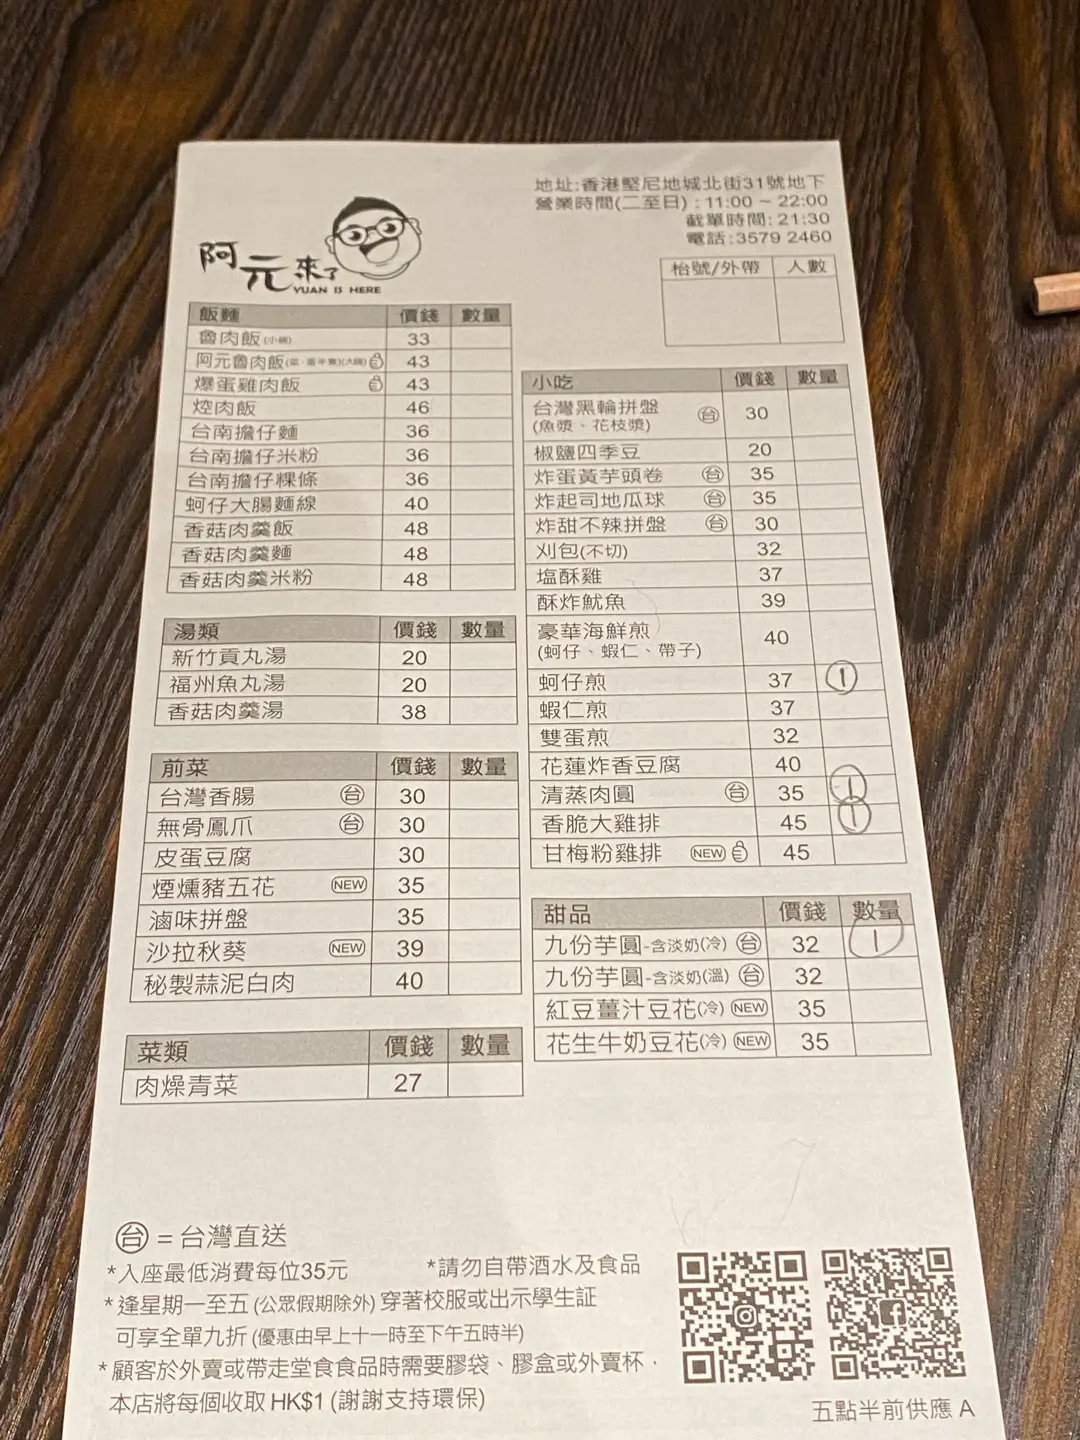 地址:香港堅尼地城北街31號地下
營業時間(二至日) : 11:00 ~ 22:00
截單時間: 21:30
電話:3579 2460
阿元來了
YUAN IS HERE
枱號/外帶 人數
飯麵 價錢 數量
魯肉飯(小碗) 33
阿元魯肉飯 43
爆蛋雞肉飯 43
焢肉飯 46
台南擔仔麵 36
台南擔仔米粉 36
台南擔仔粿條 36
蚵仔大腸麵線 40
香菇肉羹飯 48
香菇肉羹麵 48
香菇肉羹米粉 48
湯類 價錢 數量
新竹貢丸湯 20
福州魚丸湯 20
香菇肉羹湯 38
前菜 價錢 數量
台灣香腸 台 30
無骨鳳爪 台 30
皮蛋豆腐 30
煙燻豬五花 NEW 35
滷味拼盤 35
沙拉秋葵 NEW 39
秘製蒜泥白肉 40
菜類 價錢 數量
肉燥青菜 27
小吃 價錢 數量
台灣黑輪拼盤 台 30
(魚漿、花枝漿)
椒鹽四季豆 20
炸蛋黃芋頭卷 台 35
炸起司地瓜球 台 35
炸甜不辣拼盤 台 30
刈包(不切) 32
塩酥雞 37
酥炸魷魚 39
豪華海鮮煎 40
(蚵仔、蝦仁、帶子)
蚵仔煎 37 1
蝦仁煎 37
雙蛋煎 32
花蓮炸香豆腐 40
清蒸肉圓 台 35 1
香脆大雞排 45 1
甘梅粉雞排 NEW 45
甜品 價錢 數量
九份芋圓-含淡奶(冷) 台 32 1
九份芋圓-含淡奶(溫) 台 32
紅豆薑汁豆花(冷) NEW 35
花生牛奶豆花(冷) NEW 35
台 = 台灣直送
*入座最低消費每位35元 *請勿自帶酒水及食品
*逢星期一至五 (公眾假期除外) 穿著校服或出示學生証
可享全單九折 (優惠由早上十一時至下午五時半)
* 顧客於外賣或帶走堂食食品時需要膠袋、膠盒或外賣杯，
本店將每個收取 HK$1 (謝謝支持環保)
五點半前供應 A